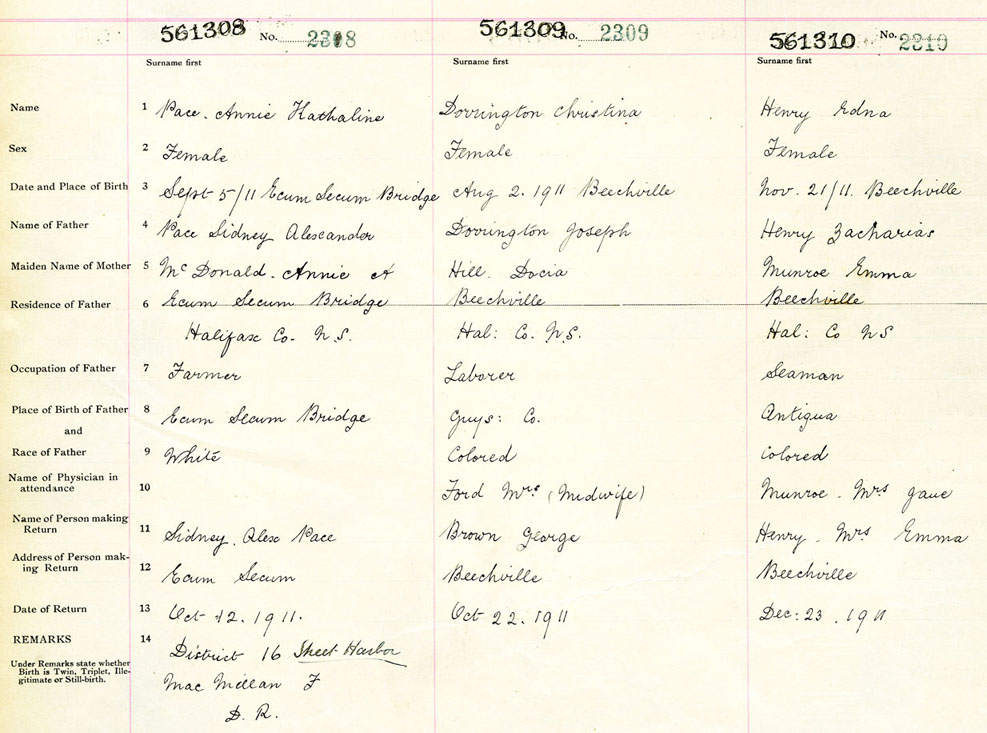 561308 No. 2308 561309 No. 2309 561310 No. 2310
Surname first Surname first Surname first
Name 1 Pace. Annie Kathaline Dorrington Christina Henry Edna
Sex 2 Female Female Female
Date and Place of Birth 3 Sept 5/11 Ecum Secum Bridge Aug 2. 1911 Beechville Nov. 21/11. Beechville
Name of Father 4 Pace Sidney Alexander Dorrington Joseph Henry Zacharias
Maiden Name of Mother 5 McDonald. Annie A Hill. Docia Munroe Emma
Residence of Father 6 Ecum Secum Bridge Beechville Beechville
Halifax Co. N.S. Hal: Co. N.S. Hal: Co NS
Occupation of Father 7 Farmer Laborer Seaman
Place of Birth of Father 8 Ecum Secum Bridge Guys: Co. Antigua
and
Race of Father 9 White Colored Colored
Name of Physician in
attendance 10 Ford Mrs (Midwife) Munroe. Mrs Jane
Name of Person making
Return 11 Sidney. Alex Pace Brown George Henry. Mrs Emma
Address of Person mak-
ing Return 12 Ecum Secum Beechville Beechville
Date of Return 13 Oct 12. 1911. Oct 22. 1911 Dec: 23. 1911
REMARKS 14 District 16 Sheet Harbor
Under Remarks state whether
Birth is Twin, Triplet, Ille-
gitimate or Still-birth.
MacMillan F
D. R.